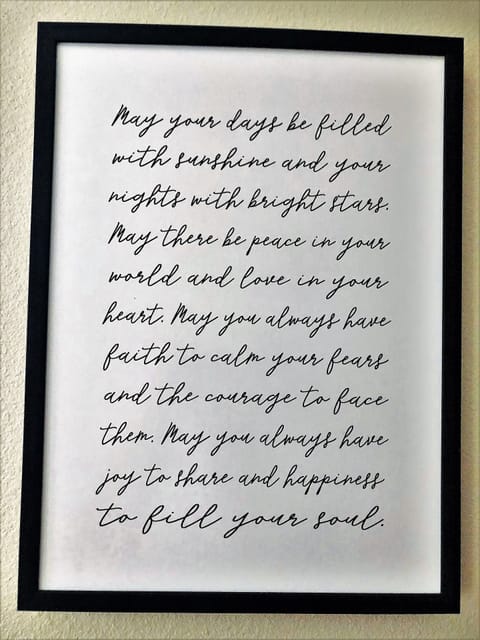 May your days be filled
with sunshine and your
nights with bright stars.
May there be peace in your
world and love in your
heart. May you always have
faith to calm your fears
and the courage to face
them. May you always have
joy to share and happiness
to fill your soul.